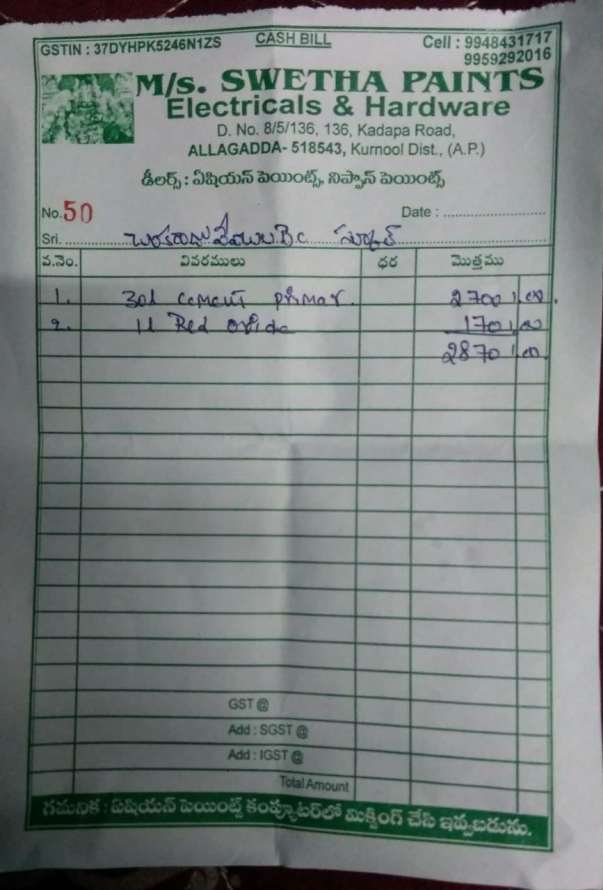 GSTIN : 37DYHPK5246N1ZS CASH BILL Cell : 9948431717
9959292016
M/s. SWETHA PAINTS
Electricals & Hardware
D. No. 8/5/136, 136, Kadapa Road,
ALLAGADDA- 518543, Kurnool Dist., (A.P.)
డీలర్స్ : ఏషియన్ పెయింట్స్, నిప్పాన్ పెయింట్స్
No. 50 Date :
Sri. BC
వ.నెం. వివరములు ధర మొత్తము
1. 30l cement primar. 2700/.00.
2. 1l Red oxide 170/.00
2870/.00
GST @
Add : SGST @
Add : IGST @
Total Amount
గమనిక : ఏషియన్ పెయింట్స్ కంప్యూటర్‌లో మిక్సింగ్ చేసి ఇవ్వబడును.